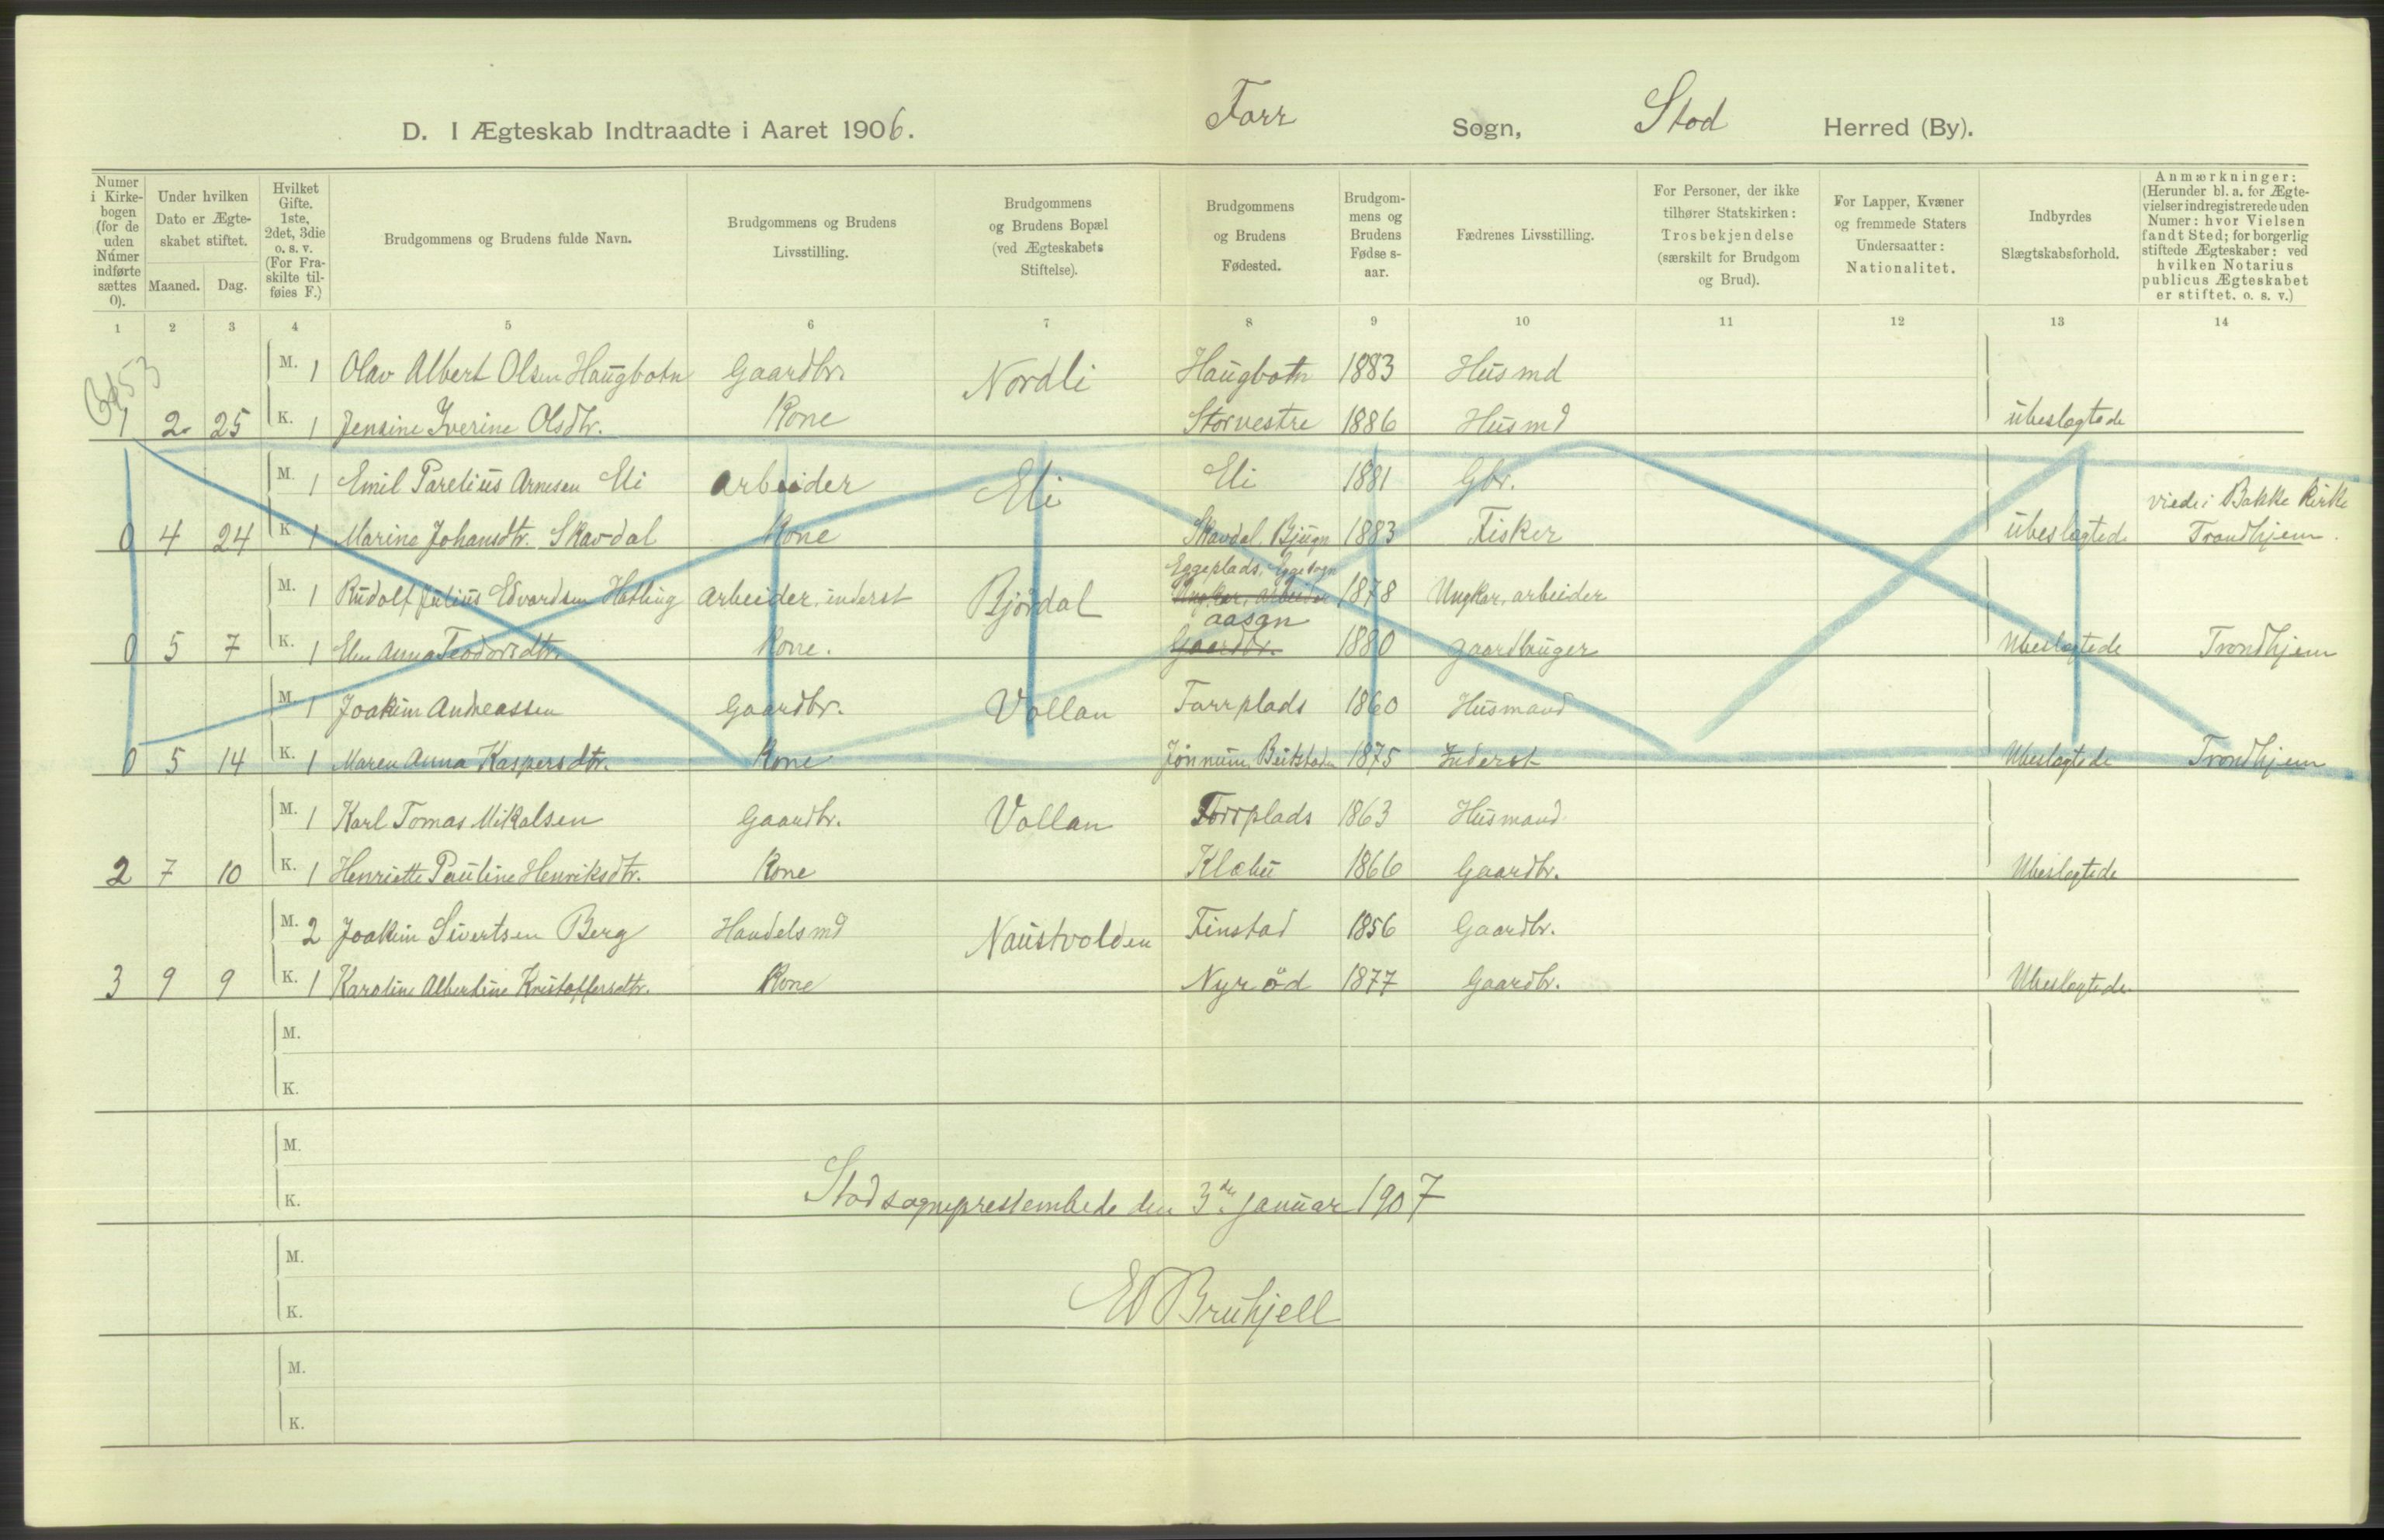 D. I Ægteskab Indtraadte i Aaret 1906. Forr Sogn, Stod Herred (By).
Numer i Kirkebogen (for de uden Númer indførte sættes 0).
Under hvilken Dato er Ægteskabet stiftet.
Maaned. Dag.
Hvilket Gifte. 1ste, 2det, 3die o. s. v. (For Fraskilte tilføies F.)
Brudgommens og Brudens fulde Navn.
Brudgommens og Brudens Livsstilling.
Brudgommens og Brudens Bopæl (ved Ægteskabets Stiftelse).
Brudgommens og Brudens Fødested.
Brudgommens og Brudens Fødselsaar.
Fædrenes Livsstilling.
For Personer, der ikke tilhører Statskirken: Trosbekjendelse (særskilt for Brudgom og Brud).
For Lapper, Kvæner og fremmede Staters Undersaatter: Nationalitet.
Indbyrdes Slægtskabsforhold.
Anmærkninger: (Herunder bl. a. for Ægtevielser indregistrerede uden Numer: hvor Vielsen fandt Sted; for borgerlig stiftede Ægteskaber: ved hvilken Notarius publicus Ægteskabet er stiftet. o. s. v.)
1 2 3 4 5 6 7 8 9 10 11 12 13 14
M. 1 Olav Albert Olsen Haugbotn Gaardbr. Nordli Haugbotn 1883 Husmd
1 2 25 K. 1 Jensine Iverine Olsdtr. Kone Storvestre 1886 Husmd ubeslægtede
M. 1 Emil Parelius Arnesen Eli arbeider Eli Eli 1881 Gbr.
0 4 24 K. 1 Marine Johansdtr. Skavdal Kone Skavdal, Bjugn 1883 Fisker ubeslægtede viede i Bakke Kirke Trondhjem.
M. 1 Rudolf Julius Edvardsen Hatling arbeider, inderst Bjørdal Eggeplads, Eggesogn Ungkar, arbeider 1878 Ungkar, arbeider
0 5 7 K. 1 Anna Teodorsdtr. Kone. aasan Gaardbr. 1880 gaardbruger Ubeslægtede Trondhjem
M. 1 Joakim Andreassen Gaardbr. Vollan Forrplads 1860 Husmand
0 5 14 K. 1 Maren Anna Kaspersdtr. Kone Beitstaden 1875 Inderst Ubeslægtede Trondhjem
M. 1 Karl Tomas Mikalsen Gaardbr. Vollan Forrplads 1863 Husmand
2 7 10 K. 1 Henriette Pauline Henriksdtr. Kone Klæbu 1866 Gaardbr. Ubeslægtede
M. 2 Joakim Sivertsen Berg Handelsmd Naustvolden Finstad 1856 Gaardbr.
3 9 9 K. 1 Karoline Albertine Kristoffersdtr. Kone Nyrød 1877 Gaardbr. Ubeslægtede
M.
K.
M.
Stod sogneprestembede den 3de januar 1907
K.
M.
K. Bruhjell
M.
K.